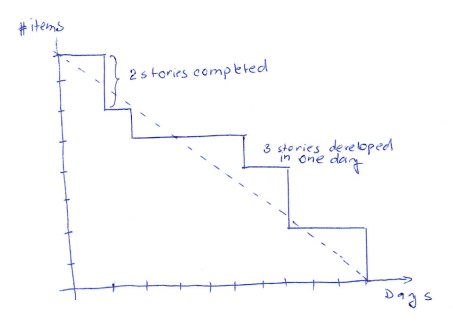 # items
2 stories completed
3 stories developed
in one day
Days